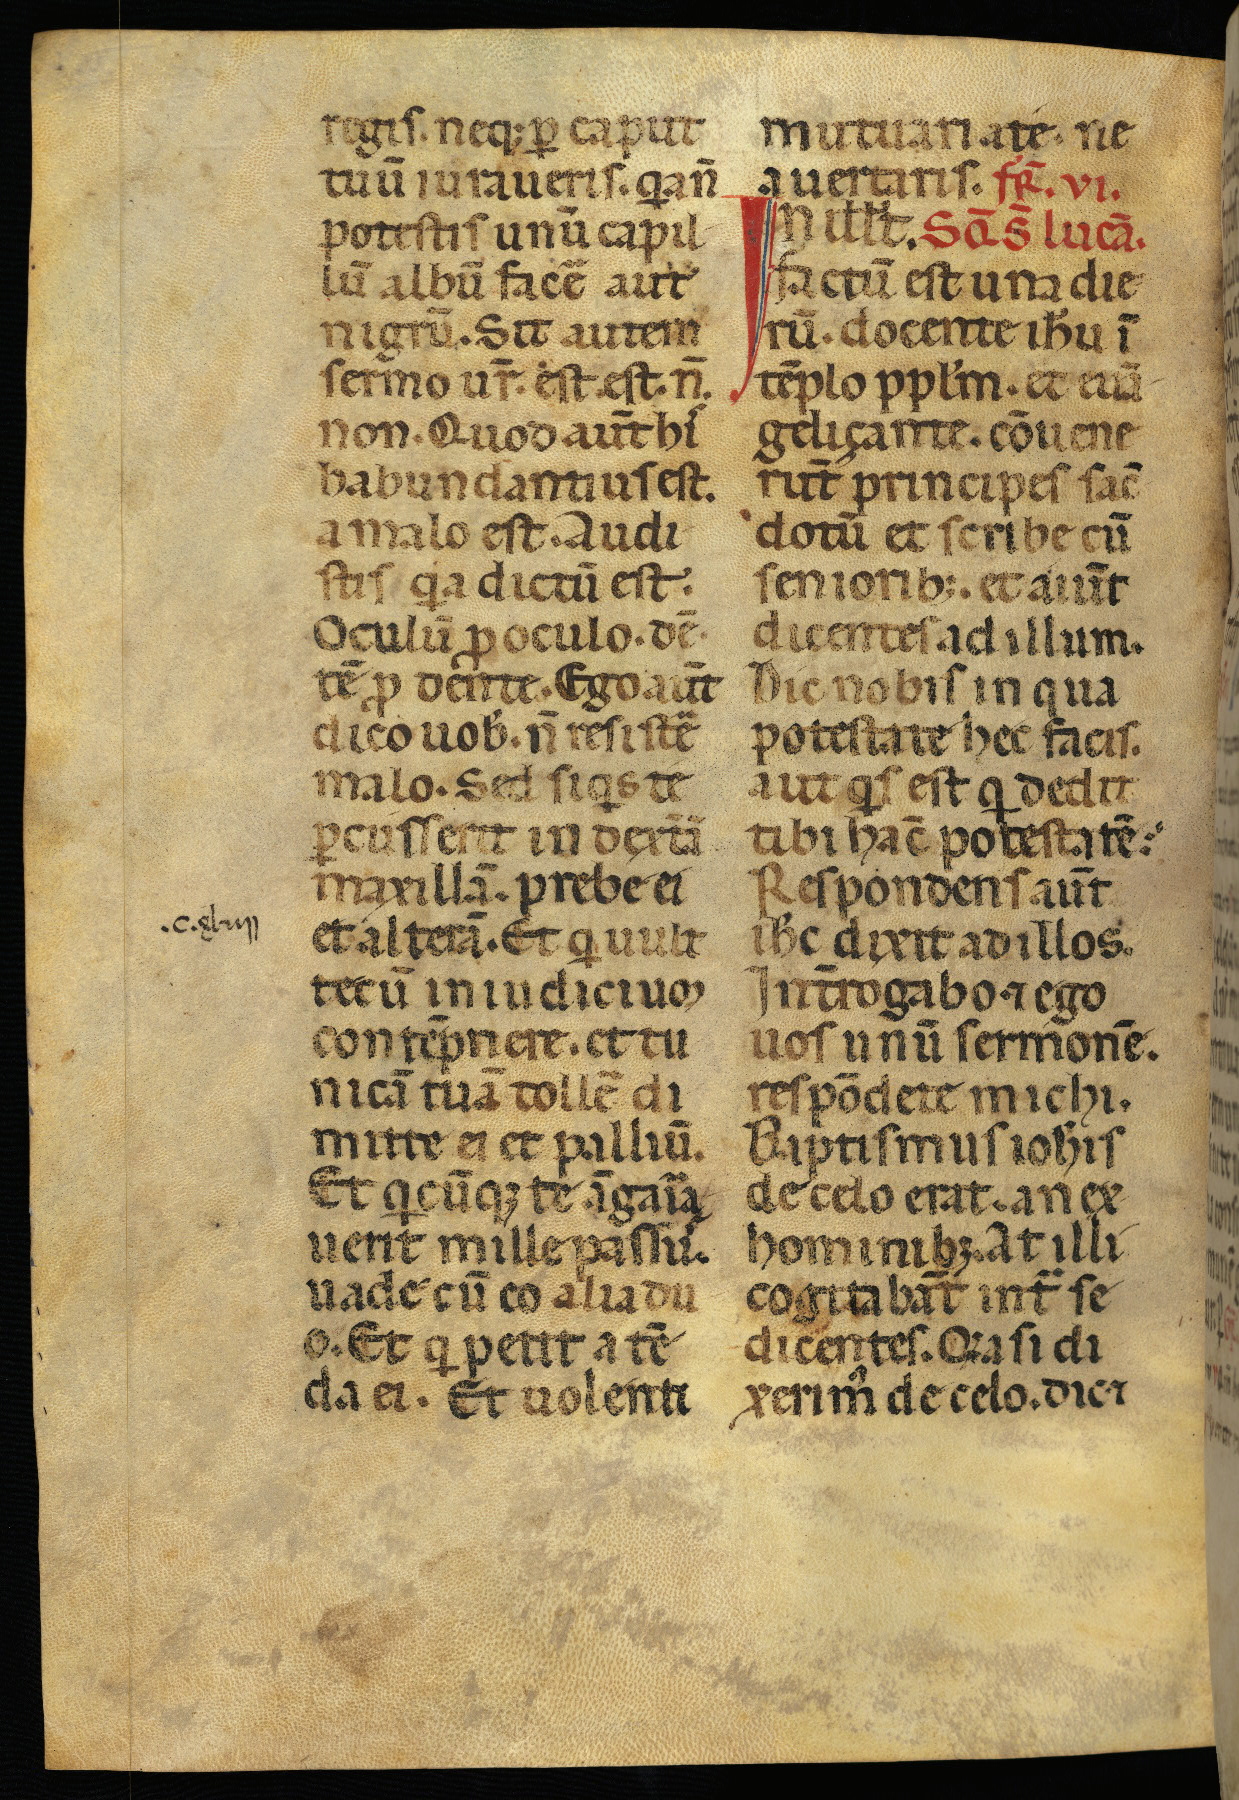 regis. neq; ꝑ caput
tuū iuraueris. q̇a n̄
potestis unū capil
lū albū facē aut
nigrū. Sit autem
sermo ur̄. est. est. n̄.
non. Quod aūt hiſ
habundantius est.
a malo est. Audi
stis q̇a dictū est.
Oculū ꝓ oculo. dē
tē ꝓ dente. Ego aūt
dico uob̄. n̄ resistē
malo. Sed si q̇s te
ꝑcusserit in dext̄ā
maxillā. prebe ei
et alterā. Et q̇ uult
tecū in iudicio
contēpnere. et tu
nicā tuā tollē di
mitte ei et palliū.
Et q̇cūq; te āgaria
uerit mille passuſ.
uade cū eo alia du
o. Et q̇ petit a tē
da ei. Et uolenti
mutuari a te. ne
auertaris. fr̄. vi.
IN ill̄t. Sc̄d̄ s̄ lucā.
factū est una die
rū. docente ih̄u ī
tēplo ppl̄m. et euā
gelizante. cōuene
rūt principes sac̄
dotū et scribe cū
seniorib;. et aiūt
dicentes ad illum.
Dic nobis in qua
potestate hec facis.
aut q̇s est q̇ dedit
tibi hāc potestatē:
Respondens aūt
ih̄c dixit ad illos.
Int̄rogabo ⁊ ego
uos unū sermonē.
respōdete michi.
Baptismus ioh̄is
de celo erat. an ex
hominib;. At illi
cogitabāt int̄ se
dicentes. Q̇a si di
xerim᷒ de celo. dic⁊